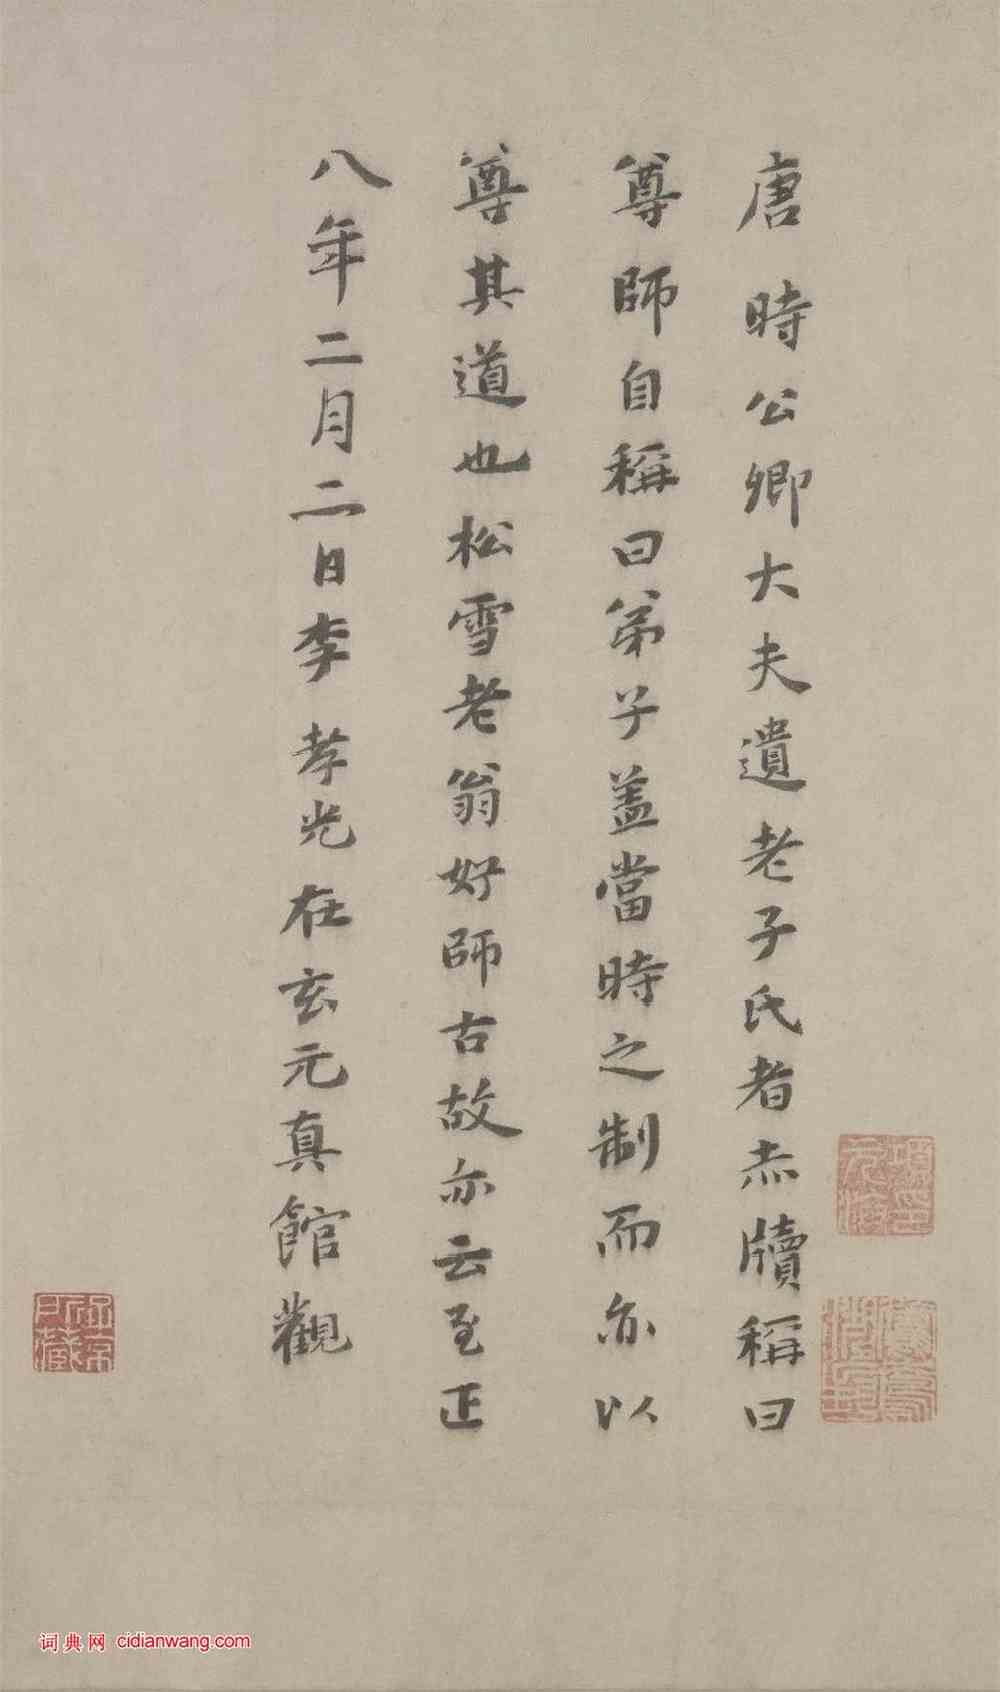 唐時公卿大夫遺老子氏者赤牘稱曰
尊師自稱曰弟子蓋當時之制而亦以
尊其道也松雪老翁好師古故亦云至正
八年二月二日李孝光在玄元真館觀
词典网 cidianwang.com